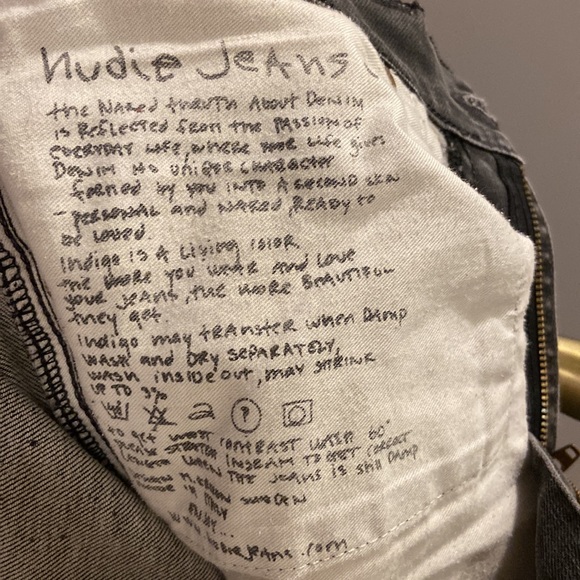 nudie Jeans
the NAKED thRUTH ABOUT DENIM
is Reflected from the PASSION OF
EVERYDAY Life, where YOUR Life gives
DENIM its UNIQUE CHARACTER
formed by YOU INTO A SECOND SKIN
- PERSONAL and NAKED, READY to
be LOVED.
Indigo is A Living COLOR
the MORE you WEAR AND LOVE
your JEANS, the MORE BEAUTIFUL
they get.
Indigo may transfer when DAMP
WASH and DRY SEPARATELY,
WASH inside out, may SHRINK
UP TO 3%
to get CONTRAST WASH 60°
INSEAM TO GET CORRECT
WHEN THE JEANS is still DAMP
SWEDEN
MADE in ITALY
ENJOY...
www.nudiejeans.com